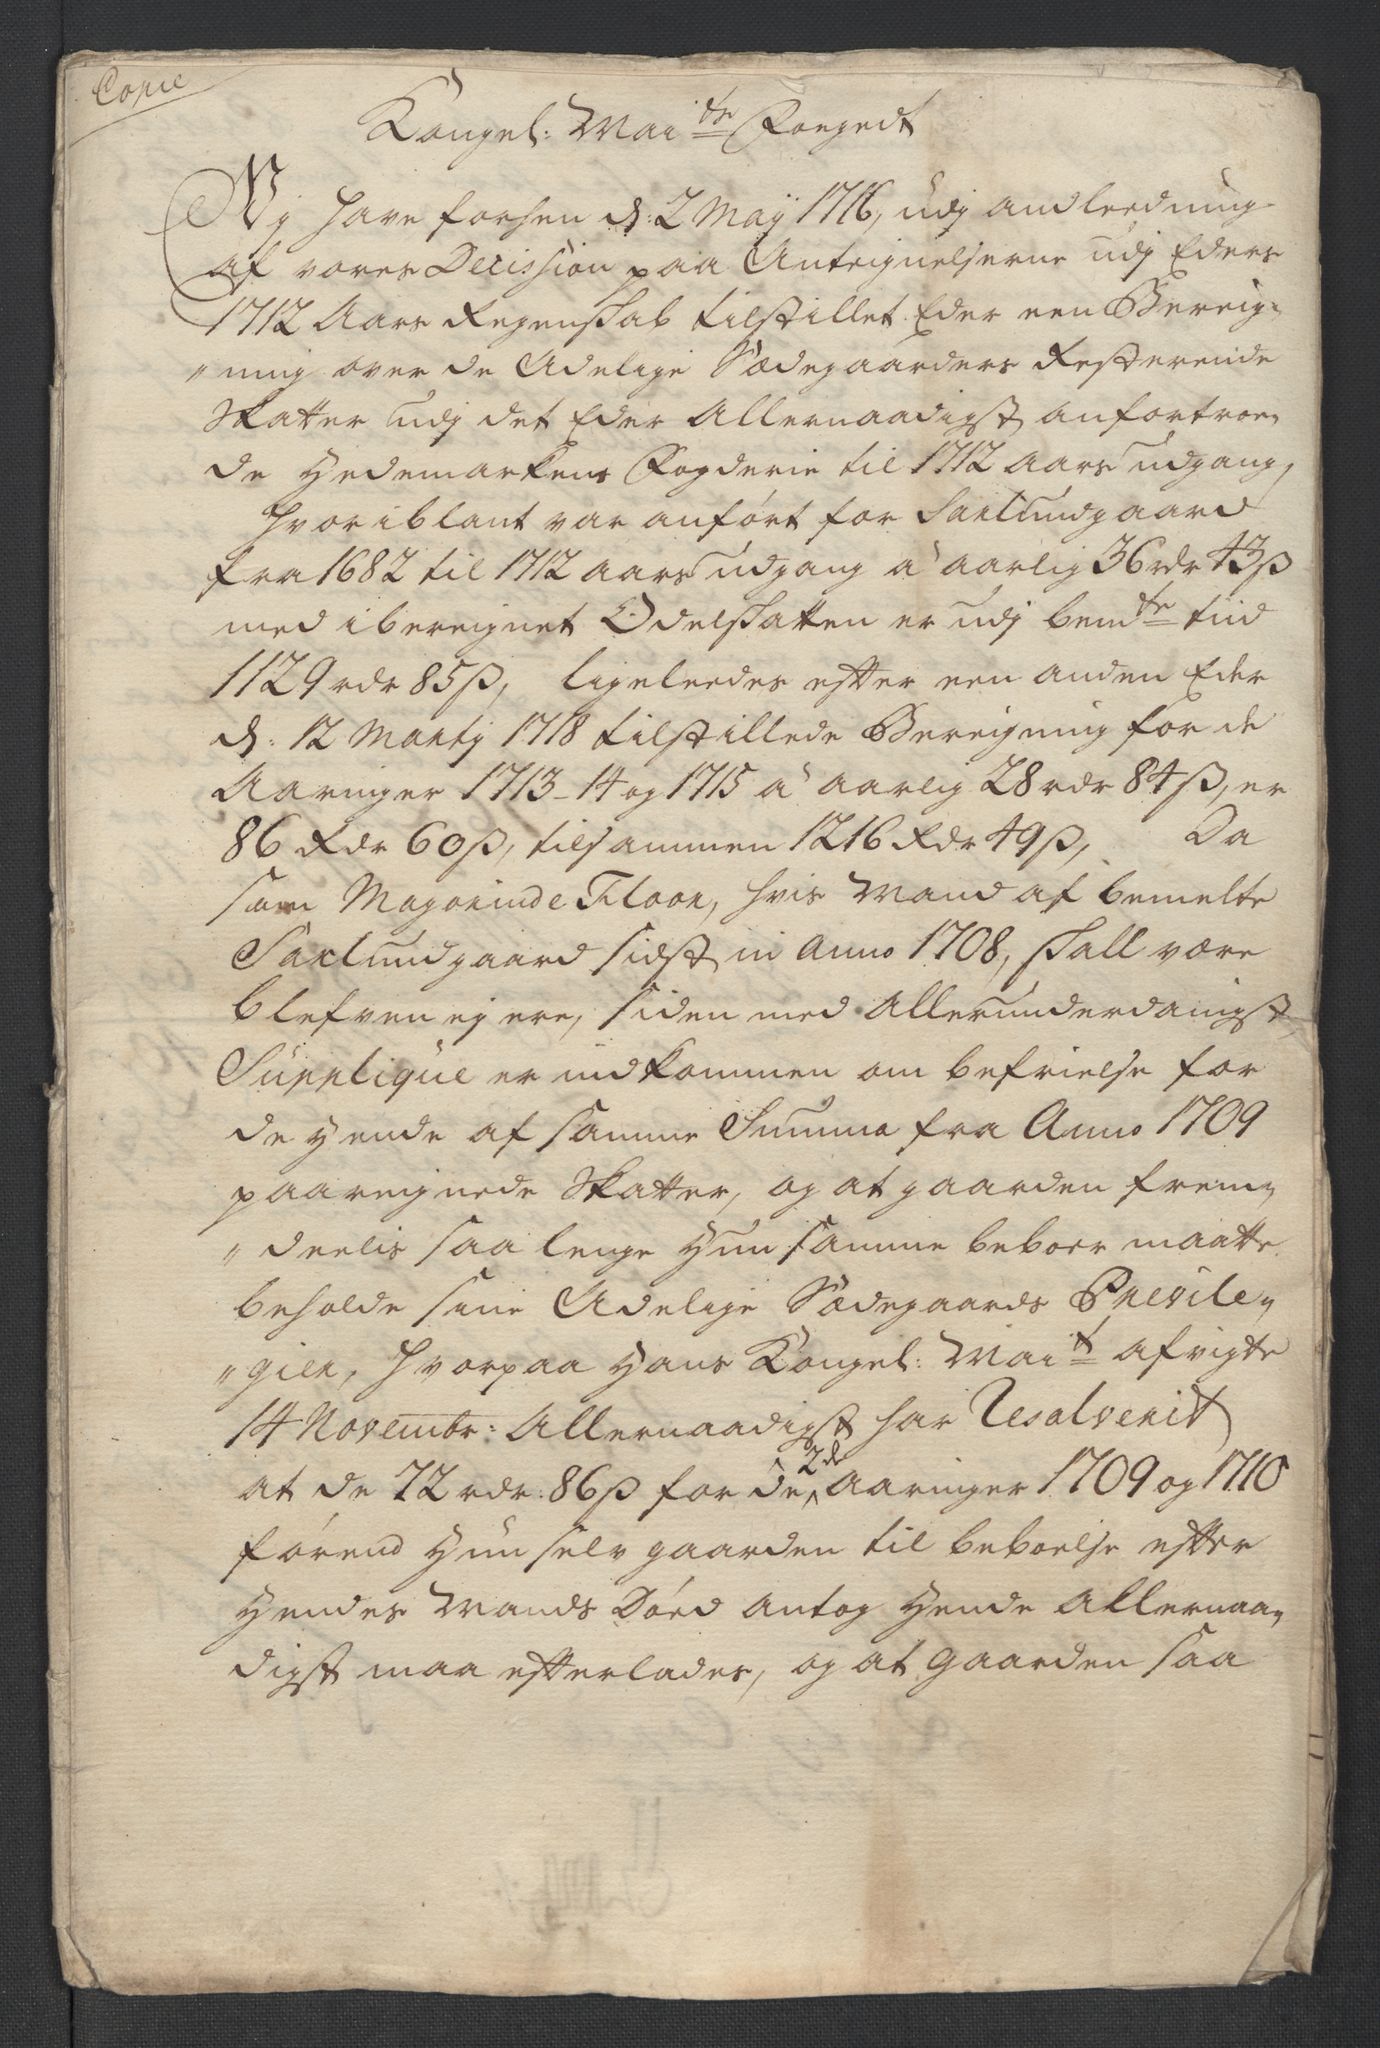 Copie
Kongel: Maitz Foegedt
Vj have forhen d: 2 Maÿ 1716, udj andleedning
af vores Decission paa Anteignelserne udj Eders
1712 Aars Regenskab tilstillet Eder een Bereig-
"ning over de Adelige Sædegaarders Resterende
Skatter udj det Eder Allernaadigst anfortroe,,
de Hedemarkens Fogderie til 1712 aars udgang,
hvoriblant var anført for Saxlundgaard
fra 1682 til 1712 aars udgang á aarlig 36 rdr 43 ß
med ibereignet Odelskatten er udj bemte tiid
1129 rdr 85 ß, ligeleedes efter een anden Eder
d: 12 Martj 1718 tilstillede Bereigning for de
Aaringer 1713-14 og 1715 á aarlig 28 rdr 84 ß, er
86 Rdr 60 ß, tilsammen 1216 Rdr 49 ß, Da
som Magorinde Floor, hvis Mand af bemelte
Saxlundgaard sidst in Anno 1708, skall være
blefven ejere, siden med Allerunderdanigst
Supplique er indkommen om befrielse for
de Hende af samme Summa fra Anno 1709
paareignede Skatter, og at gaarden frem,,
"deelis saa lenge Hun samme beboer maatte
beholde sine Adelige Sædegaards Previle,,
"gier, hvorpaa Hans Kongel: Mait afvigte
14 Novembr: Allernaadigst har Resolverit
at de 72 rdr: 86 ß for de 2de Aaringer 1709 og 1710
førend Hun selv gaarden til beboelse efter
Hendes Mands Død antog Hende Allernaa,,
digst maa efterlades, og at Gaarden saa